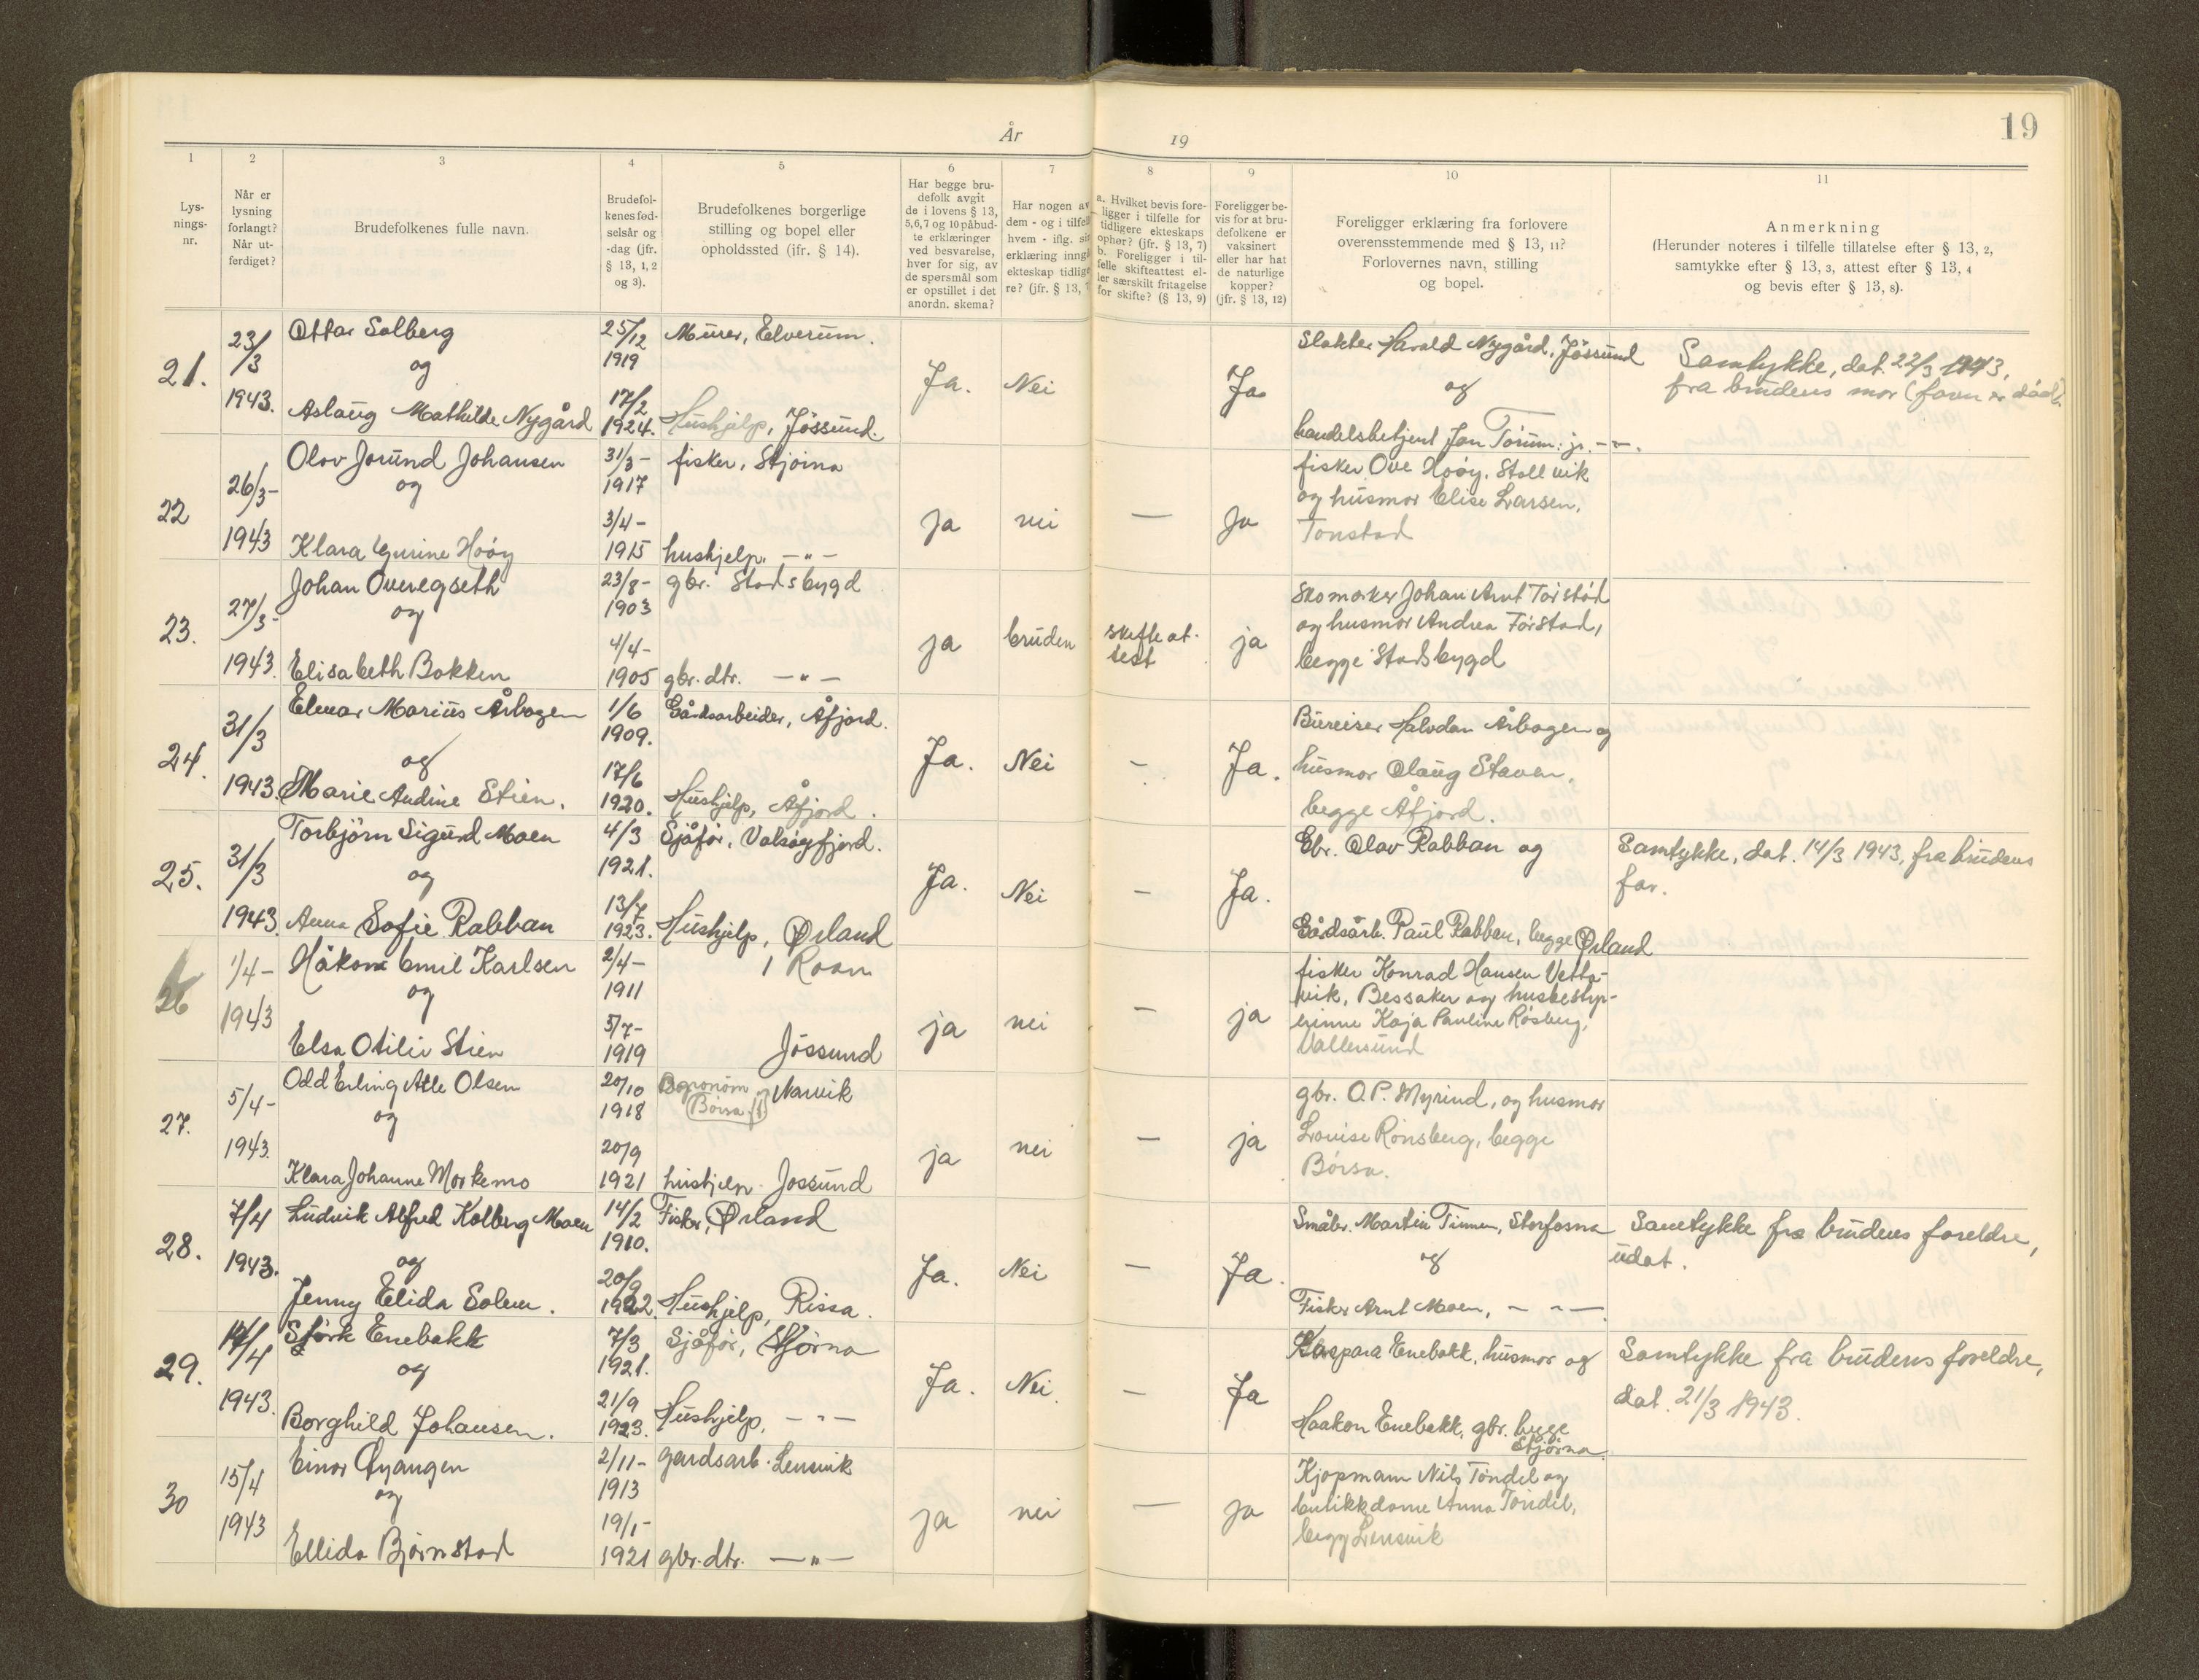 19
År 19
1
2
3
4
5
6
7
8
9
10
11
Lys-
nings-
nr.
Når er
lysning
forlangt?
Når ut-
ferdiget?
Brudefolkenes fulle navn.
Brudefol-
kenes fød-
selsår og
-dag (jfr.
§ 13, 1, 2
og 3).
Brudefolkenes borgerlige
stilling og bopel eller
opholdssted (ifr. § 14).
Har begge bru-
defolk avgit
de i lovens § 13,
5,6,7 og 10 påbud-
te erklæringer
ved besvarelse,
hver for sig, av
de spørsmål som
er opstillet i det
anordn. skema?
Har nogen av
dem - og i tilfel
hvem - iflg. sin
erklæring inngå
ekteskap tidlige
re? (jfr. § 13, 7
a. Hvilket bevis fore-
ligger i tilfelle for
tidligere ekteskaps
ophør? (jfr. § 13, 7)
b. Foreligger i til-
felle skifteattest el-
ler særskilt fritagelse
for skifte? (§ 13, 9)
Foreligger be-
vis for at bru-
defolkene er
vaksinert
eller har hat
de naturlige
kopper?
(jfr. § 13, 12)
Foreligger erklæring fra forlovere
overensstemmende med § 13, 11?
Forlovernes navn, stilling
og bopel.
Anmerkning
(Herunder noteres i tilfelle tillatelse efter § 13, 2,
samtykke efter § 13, 3, attest efter § 13, 4
og bevis efter § 13, 8).
21.
23/3
1943.
Ottar Solberg
og
Aslaug Mathilde Nygård
25/12
1919
17/2
1924.
Murer, Elverum.
Hushjelp, Jössund.
Ja.
Nei
Ja
Slakter Harald Nygård, Jössund
og
handelsbetjent Jon Törum jr. -"-.
Samtykke, dat. 22/3 1943,
fra brudens mor (faren er död).
22
26/3-
1943
Olav Jorund Johansen
og
Klara Gurine Hoöy
31/3-
1917
3/4-
1915
fisker, Stjørna
hushjelp. -"-
ja
nei
—
Ja
fisker Ove Hoöy, Stallvik
og husmor Elise Larsen,
Tonstad
23.
27/3-
1943.
Johan Overegseth
og
Elisabeth Bakken
23/8-
1903
4/4-
1905
gbr. Stadsbygd
gbr. dtr. -"-
ja
bruden
skifteat-
test
ja
Skomaker Johan Arnt Tørstad
og husmor Andrea Førstad,
begge Stadsbygd
24.
31/3
1943.
Elmar Marius Årbogen
og
Marie Audine Stien.
1/6
1909.
17/6
1920.
Gårdsarbeider, Åfjord.
Hushjelp, Åfjord.
Ja.
Nei
-
Ja.
Bureiser Halvdan Årbogen og
husmor Olaug Staven,
begge Åfjord.
25.
31/3
1943.
Torbjörn Sigurd Moen
og
Anna Sofie Rabban
4/3
1921.
13/7
1923.
Sjåför, Valsøyfjord.
Hushjelp, Ørland
Ja.
Nei
-
Ja.
Gbr. Olav Rabban og
Gårdsarb. Paul Rabban, begge Ørland
Samtykke, dat. 14/3 1943, fra brudens
far.
26
1/4-
1943
Håkon Emil Karlsen
og
Elsa Otilie Stien
2/4-
1911
5/7-
1919
Roan
Jössund
ja
nei
-
ja
fisker Konrad Hansen Vetta-
vik, Bessaker og husbestyr-
erinne Kaja Pauline Røsberg,
Vallersund
27.
5/4-
1943.
Odd Erling Atle Olsen
og
Klara Johanne Morkemo
20/10
1918
20/9
1921
Agronom
Børsa
Narvik
hushjelp. Jossund
ja
nei
-
ja
gbr. O.P. Myrind, og husmor
Lovise Rønsberg, begge
Børsa.
28.
7/4
1943.
Ludvik Alfred Kolberg Moen
og
Jenny Elida Solem.
14/2
1910.
20/9
1922.
Fisker, Ørland
Hushjelp, Rissa.
Ja.
Nei
-
Ja.
Småbr. Martin Tinnen, Storfosna
og
Fisker Arnt Moen, -"-
Samtykke fra brudens foreldre,
udat.
29.
14/4
1943.
Størk Enebakk
og
Borghild Johansen.
7/3
1921.
21/9
1923.
Sjåför, Stjørna
Hushjelp, -"-
Ja.
Nei.
-
Ja
Kaspara Enebakk, husmor og
Haakon Enebakk, gbr. begge
Stjørna
Samtykke fra brudens foreldre,
dat. 21/3 1943.
30
15/4
1943
Einar Øyangen
og
Ellida Bjørnstad
2/11-
1913
19/1-
1921
gardsarb. Lensvik
gbr. dtr. -"-
ja
nei
—
ja
Kjøpmann Nils Tøndel og
butikkdame Anna Tøndel,
begge Lensvik